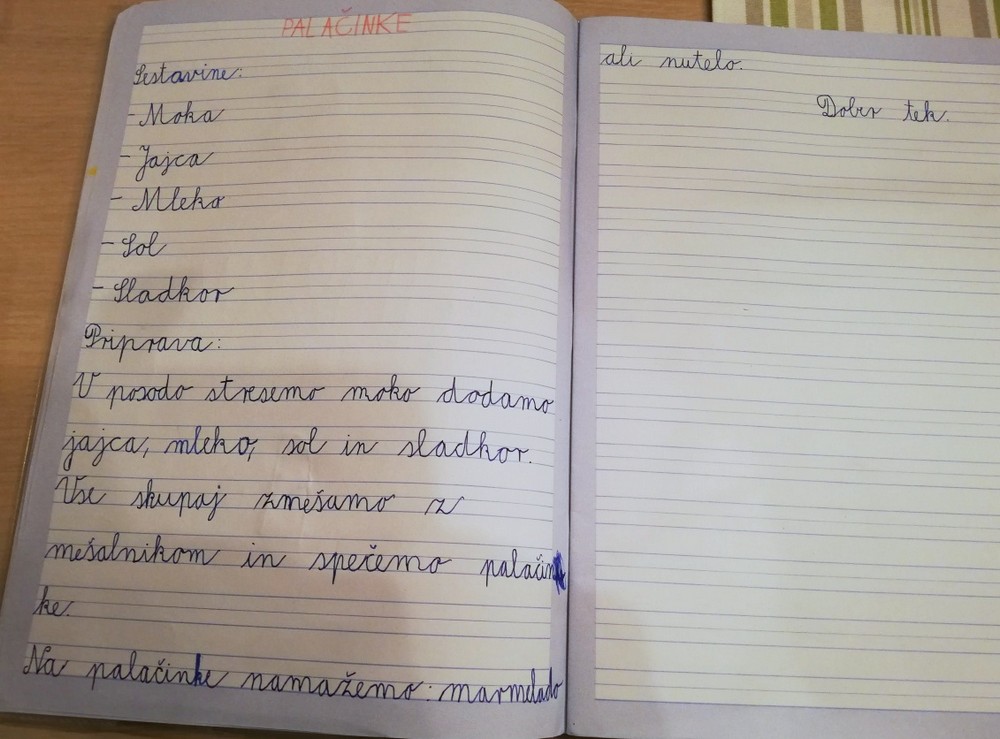 PALAČINKE
Sestavine:
- Moka
- Jajca
- Mleko
- Sol
- Sladkor
Priprava:
V posodo stresemo moko dodamo
jajca, mleko, sol in sladkor.
Vse skupaj zmešamo z
mešalnikom in spečemo palačin
ke.
Na palačinke namažemo: marmelado
ali nutelo.
Dober tek.